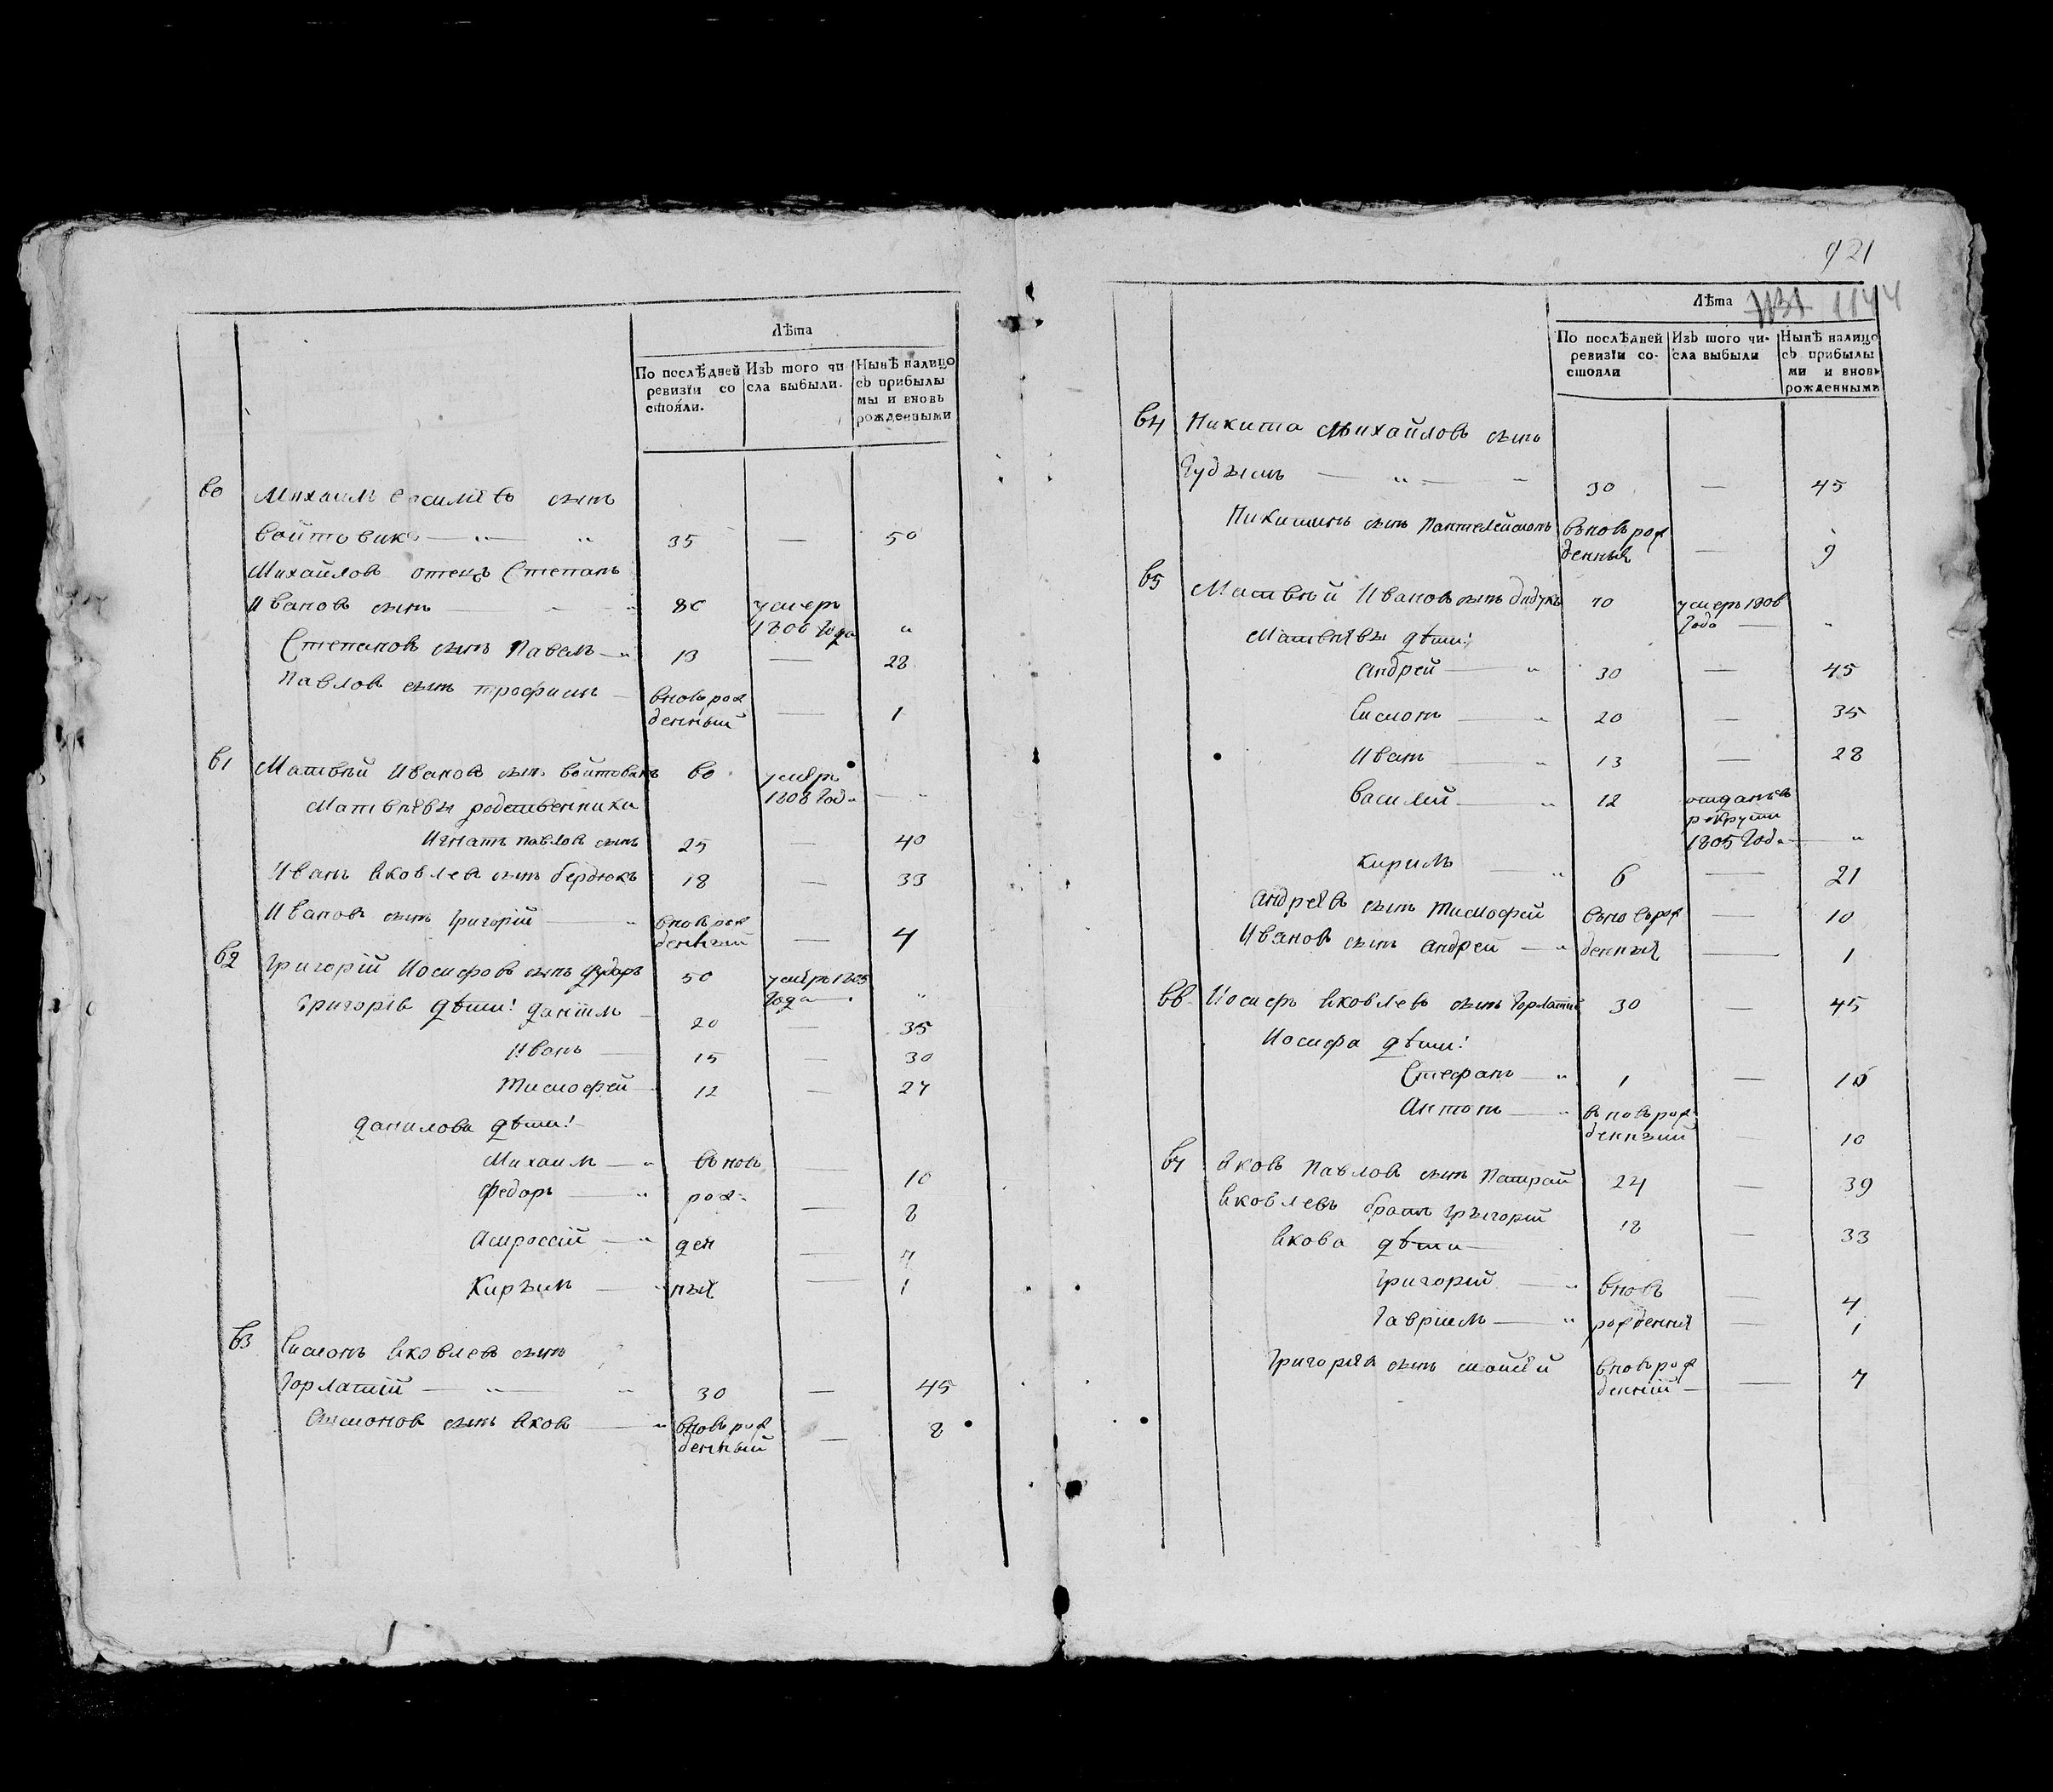 Лѣта
По послѣдней ревизіи состояли.
Изъ того числа выбыли.
Нынѣ налицо съ прибылыми и вновь рожденными
60 Михаилъ Василіевъ сынъ
Войтовикъ — 35 — 50
Михайловъ отецъ Степанъ
Ивановъ сынъ — 80 умеръ 1806 года "
Степановъ сынъ Павелъ — 13 — 28
Павловъ сынъ Трофимъ — вновь рожденный — 1
61 Матвѣй Ивановъ сынъ Войтовикъ 60 умеръ 1808 год. — "
Матвѣевы родственники
Игнатъ Павловъ сынъ 25 — 40
Иванъ Яковлевъ сынъ Бердюкъ 18 — 33
Ивановъ сынъ Григорій — вновь рожденный — 4
62 Григорій Иосифовъ сынъ 50 умеръ 1805 года — "
Григорія дѣти: Даніилъ — 20 — 35
Иванъ — 15 — 30
Тимофей — 12 — 27
Данилова дѣти:
Михаилъ — вновь — 10
Федоръ — рож — 8
Амросій — ден — 7
Кирылъ — ныя — 1
63 Симонъ Яковлевъ сынъ
Горлатій — 30 — 45
Сымоновъ сынъ Яковъ — вновь рожденный — 8
921
1131 1144
Лѣта
По послѣдней ревизіи состояли
Изъ того числа выбыли
Нынѣ налицо съ прибылыми и вновь рожденными
64 Никита Михайловъ сынъ
Гудзымъ — 30 — 45
Никитинъ сынъ Пантелеймонъ вьновь рожденныя — 9
65 Матвѣй Ивановъ сынъ Дидукъ 70 умеръ 1806 года — "
Матвѣевы дѣти:
Андрей — 30 — 45
Симонъ — 20 — 35
Иванъ — 13 — 28
Василій — 12 отданъ в рекруты 1805 год. — "
Кирилъ — 6 — 21
Андреевъ сынъ Тимофей вьновь рож — 10
Ивановъ сынъ Андрей — денныя — 1
66 Иосифъ Яковлевъ сынъ Горлатій 30 — 45
Иосифа дѣти:
Стефанъ — 1 — 16
Антонъ — вновь рожденный — 10
67 Яковъ Павловъ сынъ Патрай 24 — 39
Яковлевъ братъ Грыгорій 18 — 33
Якова дѣти —
Григорій — вновь — 4
Гавріилъ — рожденныя — 1
Григорія сынъ вновь рожденній — 7